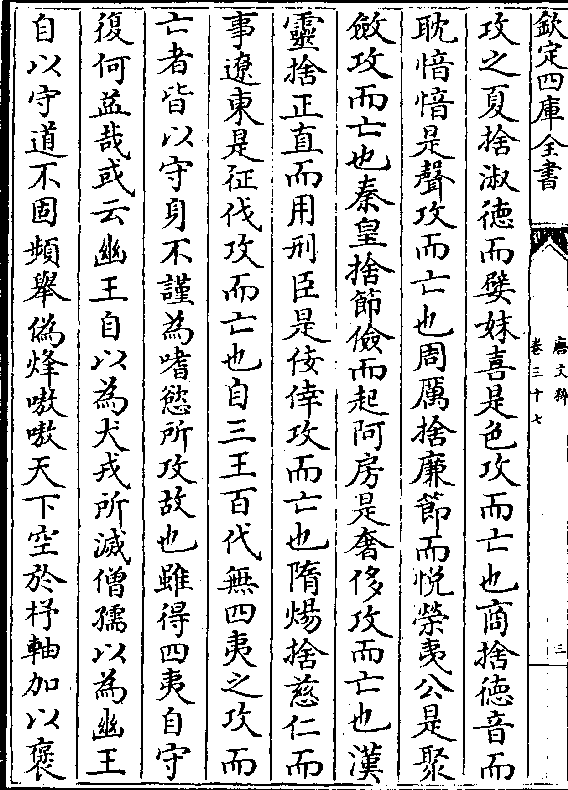 欽定四庫全書
唐文粹
卷三十七
三
攻之夏捨淑徳而嬖妹喜是色攻而亡也商捨徳音而
耽愔愔是聲攻而亡也周厲捨廉節而悦榮夷公是聚
斂攻而亡也秦皇捨節儉而起阿房是奢侈攻而亡也漢
靈捨正直而用刑臣是佞倖攻而亡也隋煬捨慈仁而
事遼東是征伐攻而亡也自三王百代無四夷之攻而
亡者皆以守身不謹為嗜慾所攻故也雖得四夷自守
復何益哉或云幽王自以為犬戎所滅僧孺以為幽王
自以守道不固頻舉偽烽嗷嗷天下空於杼軸加以褒